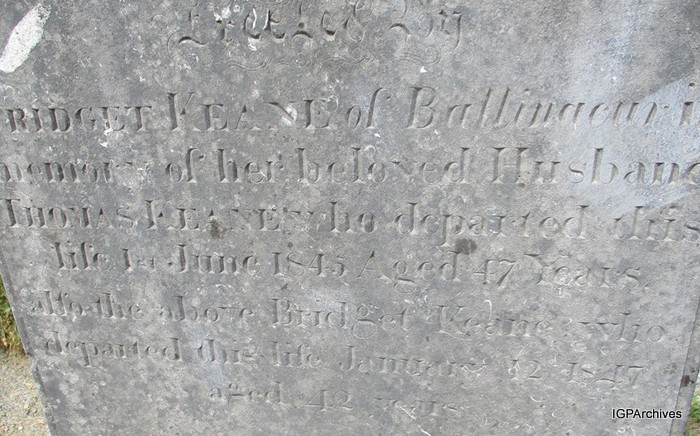 Erected By
BRIDGET KEANE of Ballinacur in
memory of her beloved Husband
THOMAS KEANE who departed this
life 1st June 1845 Aged 47 Years.
also the above Bridget Keane who
departed this life January 12th 1847
aged 42 years
IGPArchives